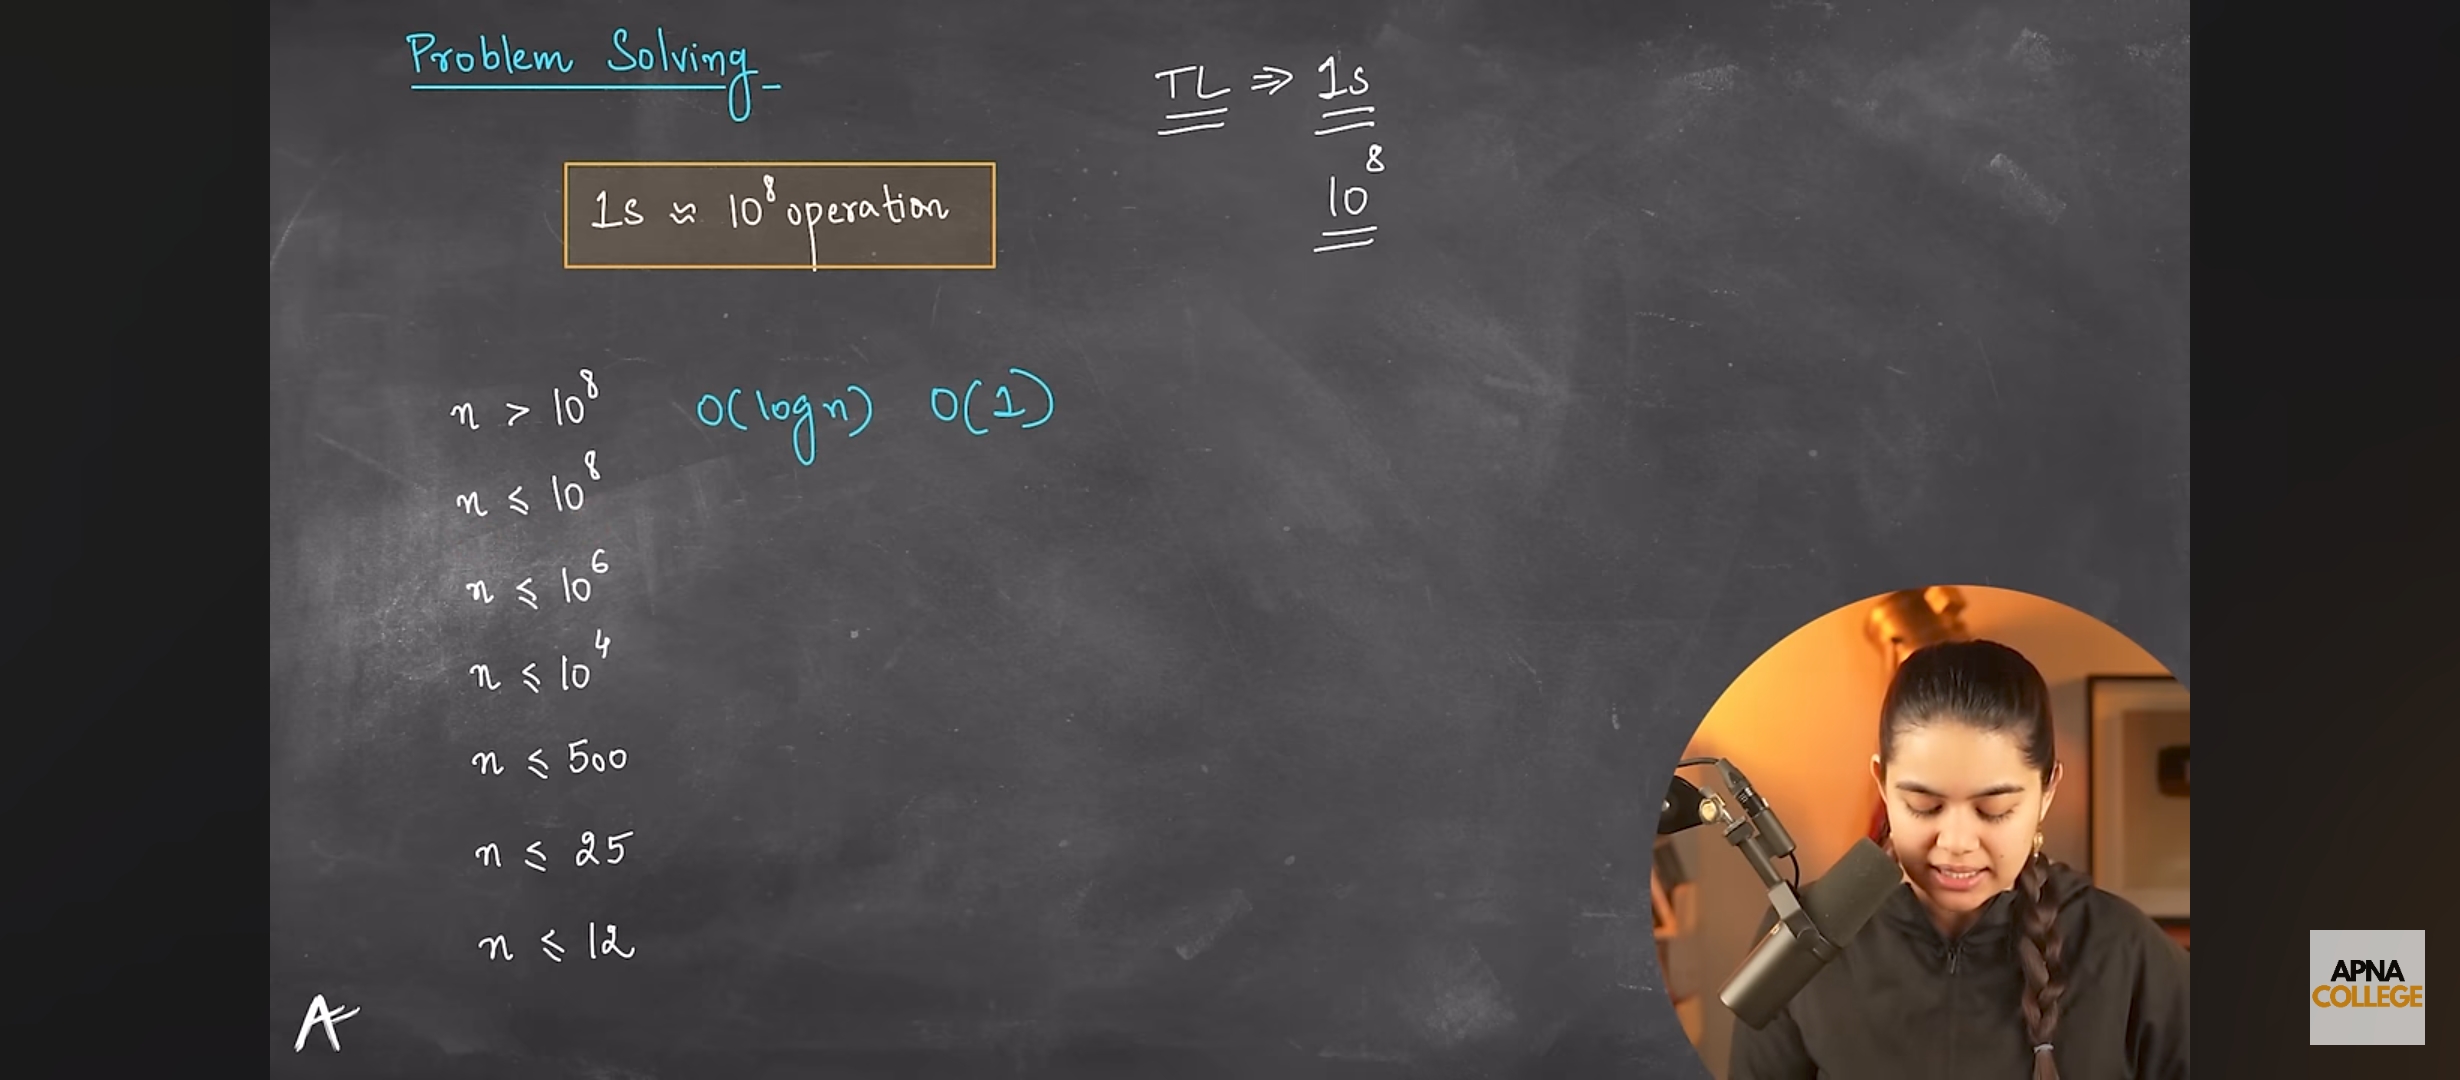 Problem Solving
TL ⇒ 1s
10⁸
1s ≈ 10⁸ operation
n > 10⁸ O(log n) O(1)
n ≤ 10⁸
n ≤ 10⁶
n ≤ 10⁴
n ≤ 500
n ≤ 25
n ≤ 12
A
APNA
COLLEGE